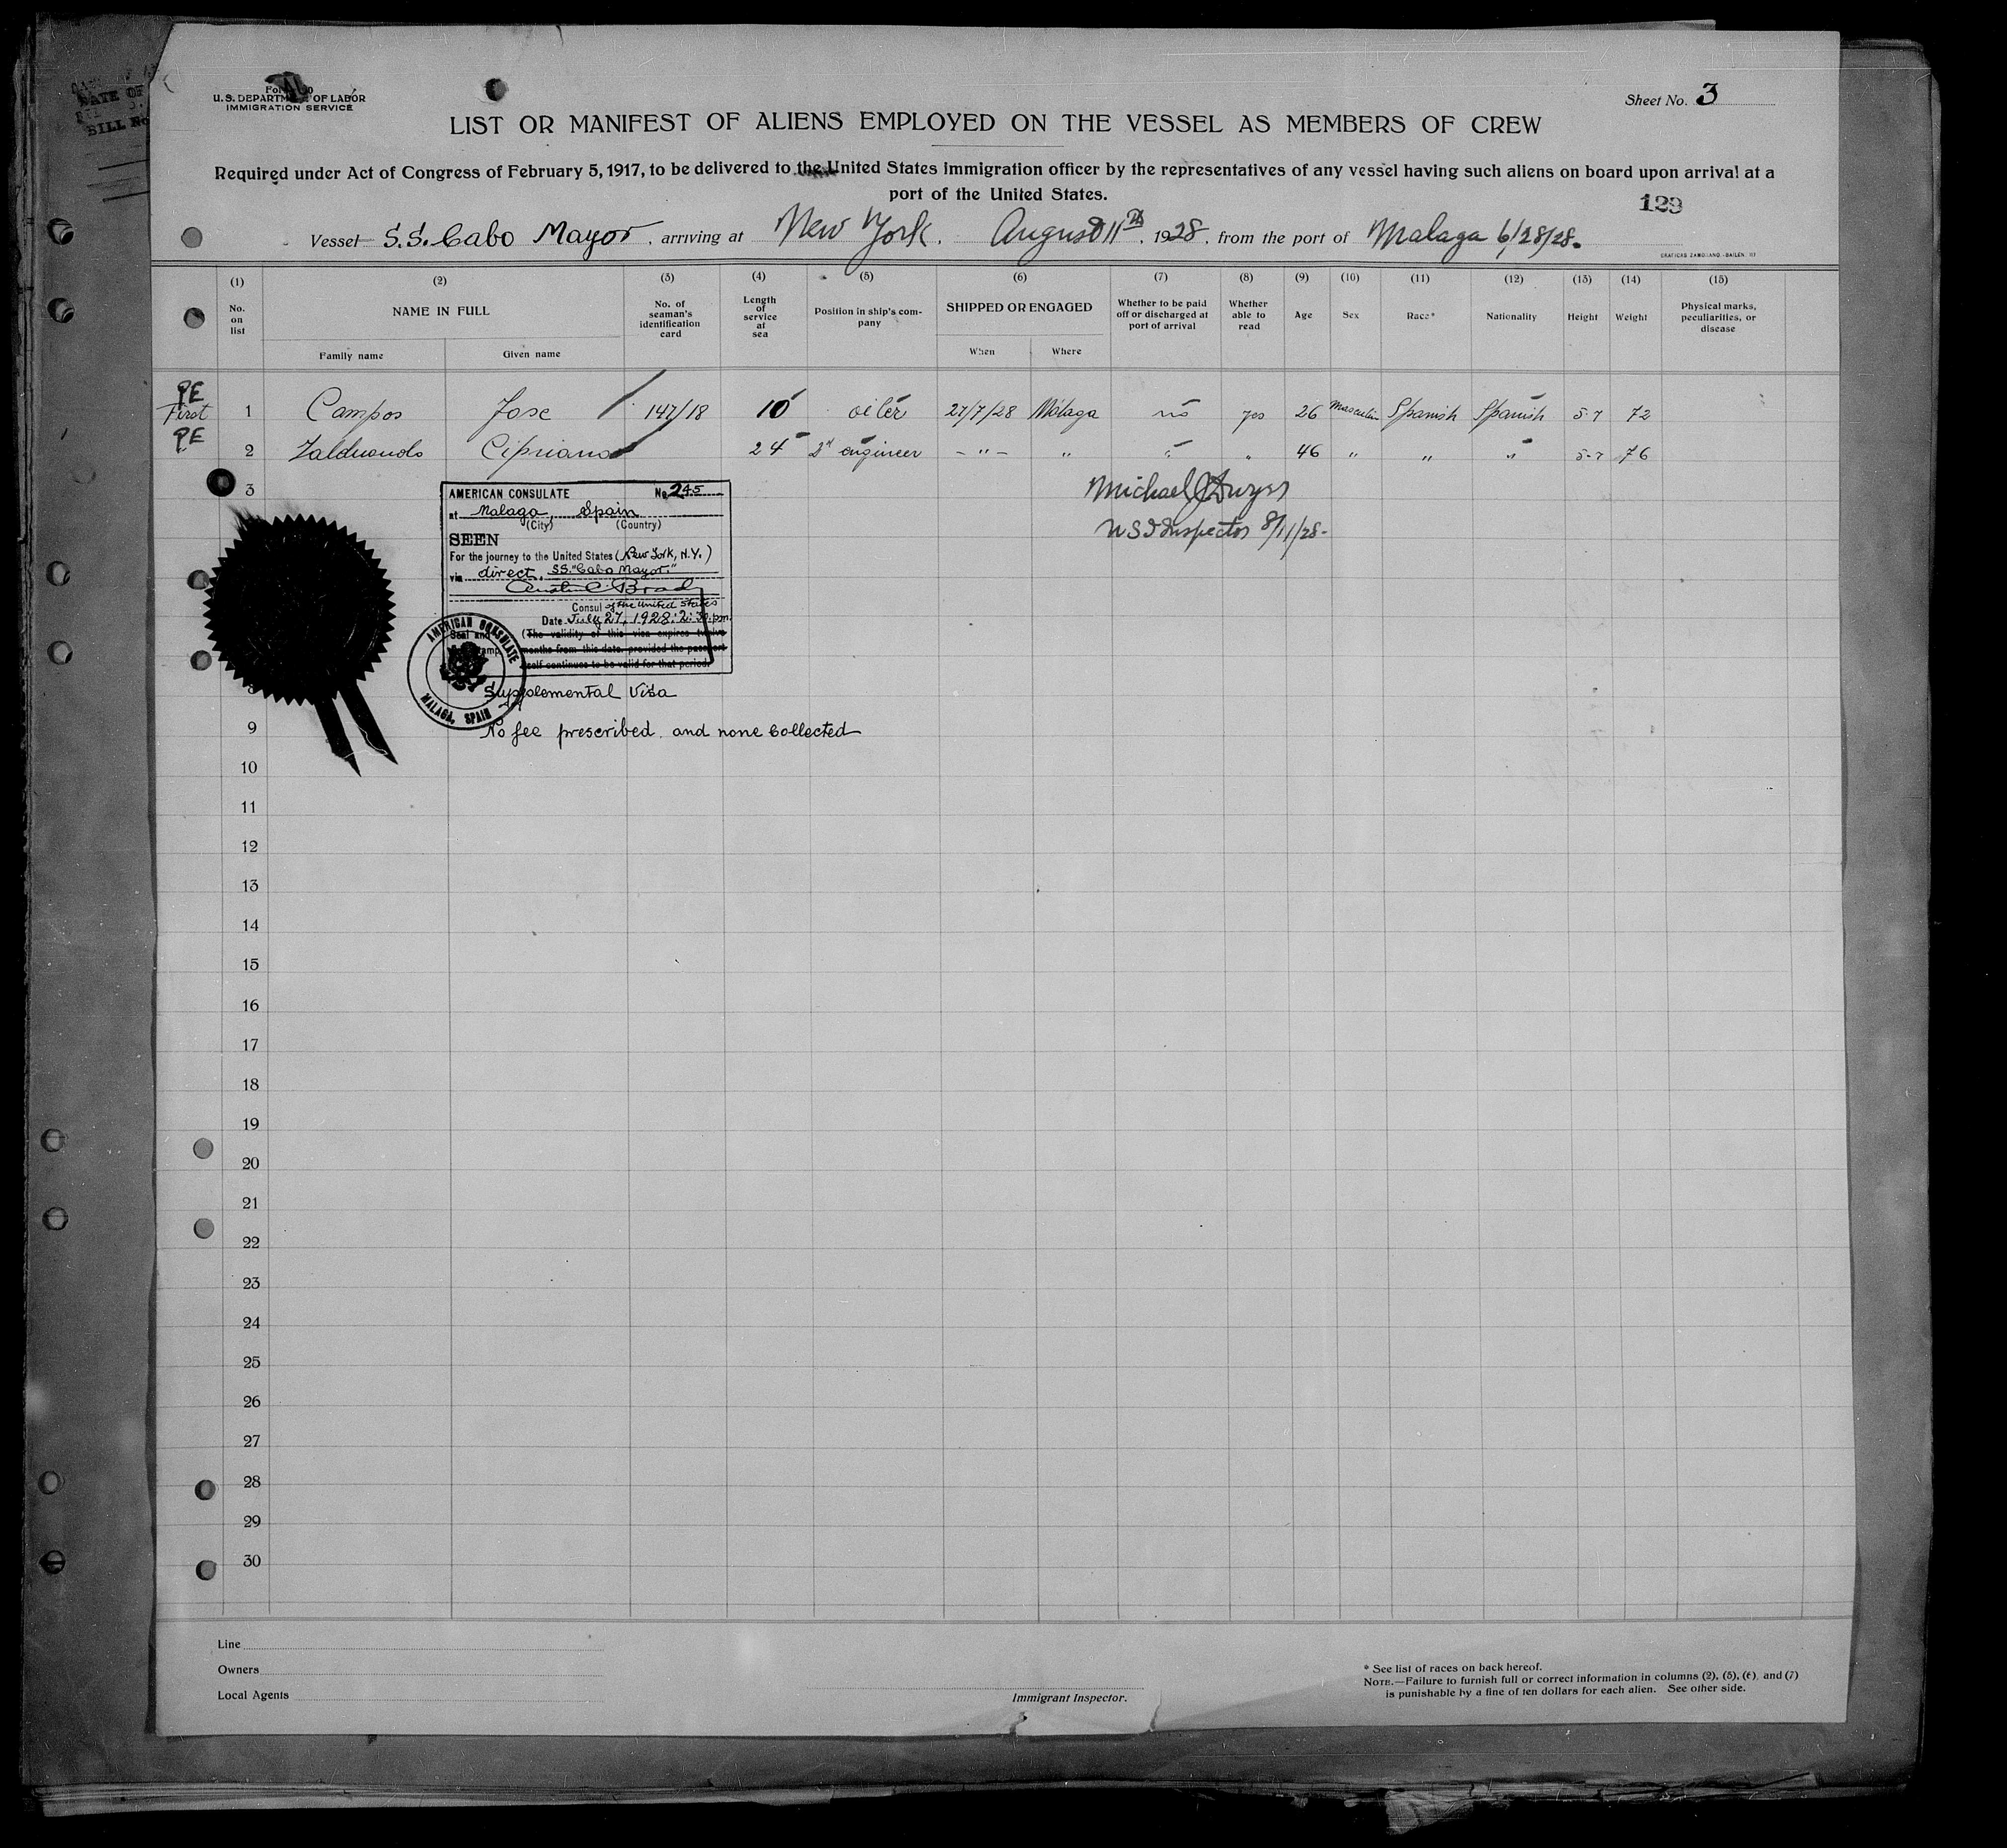 DATE OF
BILL No
U. S. DEPARTMENT OF LABOR
IMMIGRATION SERVICE
Sheet No. 3
LIST OR MANIFEST OF ALIENS EMPLOYED ON THE VESSEL AS MEMBERS OF CREW
Required under Act of Congress of February 5, 1917, to be delivered to the United States immigration officer by the representatives of any vessel having such aliens on board upon arrival at a
port of the United States.
129
Vessel S.S. Cabo Mayor, arriving at New York. August 11th, 1928, from the port of Malaga 6/28/28.
(1) (2) (3) (4) (5) (6) (7) (8) (9) (10) (11) (12) (13) (14) (15)
No. on list
NAME IN FULL
Family name Given name
No. of seaman's identification card
Length of service at sea
Position in ship's company
SHIPPED OR ENGAGED
When Where
Whether to be paid off or discharged at port of arrival
Whether able to read
Age Sex Race* Nationality Height Weight
Physical marks, peculiarities, or disease
PE
First 1 Campos Jose 147/18 10 oiler 27/7/28 Málaga no yes 26 Masculin Spanish Spanish 5-7 72
PE
2 Zalduondo Cipriano 24 2d engineer - " - " " " 46 " " " 5-7 76
3
Michael J Dwyer
US I Inspector 8/11/28.
AMERICAN CONSULATE No. 245
at Malaga, Spain
(City) (Country)
SEEN
For the journey to the United States (New York, N.Y.)
via direct, SS. "Cabo Mayor."
Consul of the United States
Date July 27, 1928: 2:30 p.m.
Seal and (The validity of this visa expires twelve
months from this date, provided the passport
itself continues to be valid for that period)
AMERICAN CONSULATE
MALAGA, SPAIN
Supplemental Visa
9
No fee prescribed and none collected
10
11
12
13
14
15
16
17
18
19
20
21
22
23
24
25
26
27
28
29
30
Line
Owners
Local Agents
Immigrant Inspector.
* See list of races on back hereof.
NOTE.—Failure to furnish full or correct information in columns (2), (5), (6), and (7)
is punishable by a fine of ten dollars for each alien. See other side.